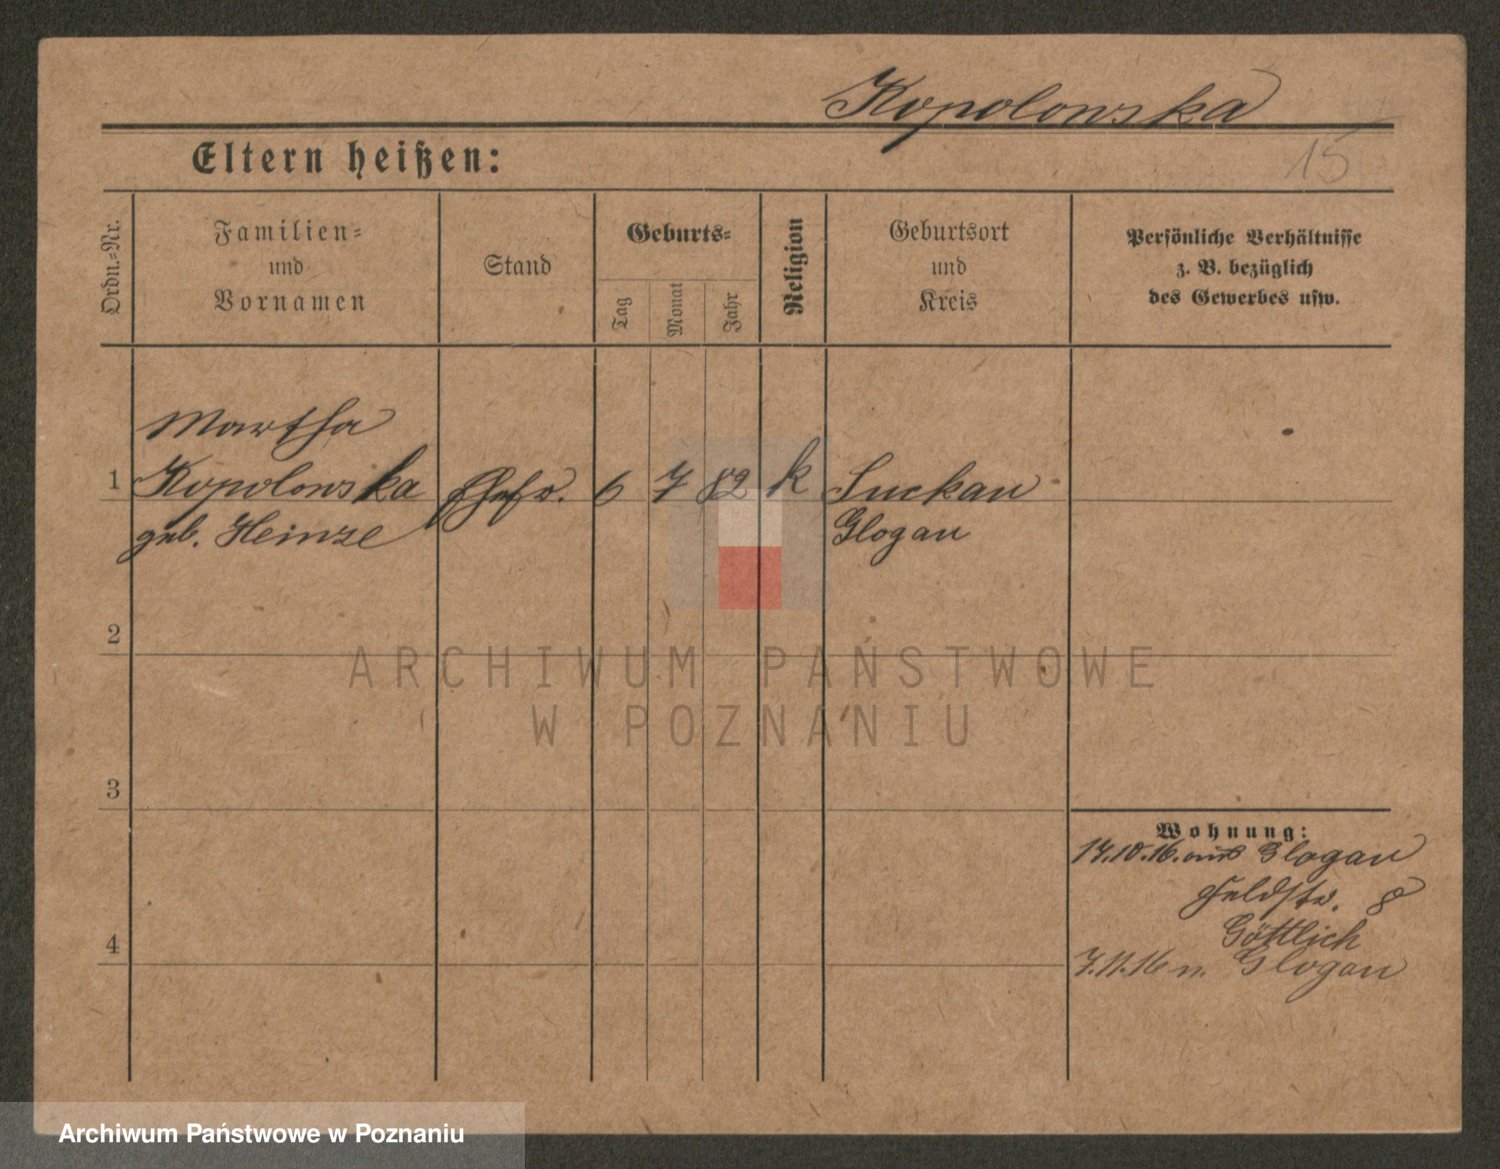 Kopolowska
15
Eltern heißen:
Ordn.-Nr.
Familien-
und
Vornamen
Stand
Geburts-
Tag
Monat
Jahr
Religion
Geburtsort
und
Kreis
Persönliche Verhältnisse
z. B. bezüglich
des Gewerbes usw.
Martha
1 Kopolowska Ehefr. 6 7 82 k Suckau
geb. Heinze Glogau
2
3
4
Wohnung:
14.10.16. aus Glogau
Feldstr. 8
Göttlich
7.11.16 n. Glogau
ARCHIWUM PAŃSTWOWE
W POZNANIU
Archiwum Państwowe w Poznaniu